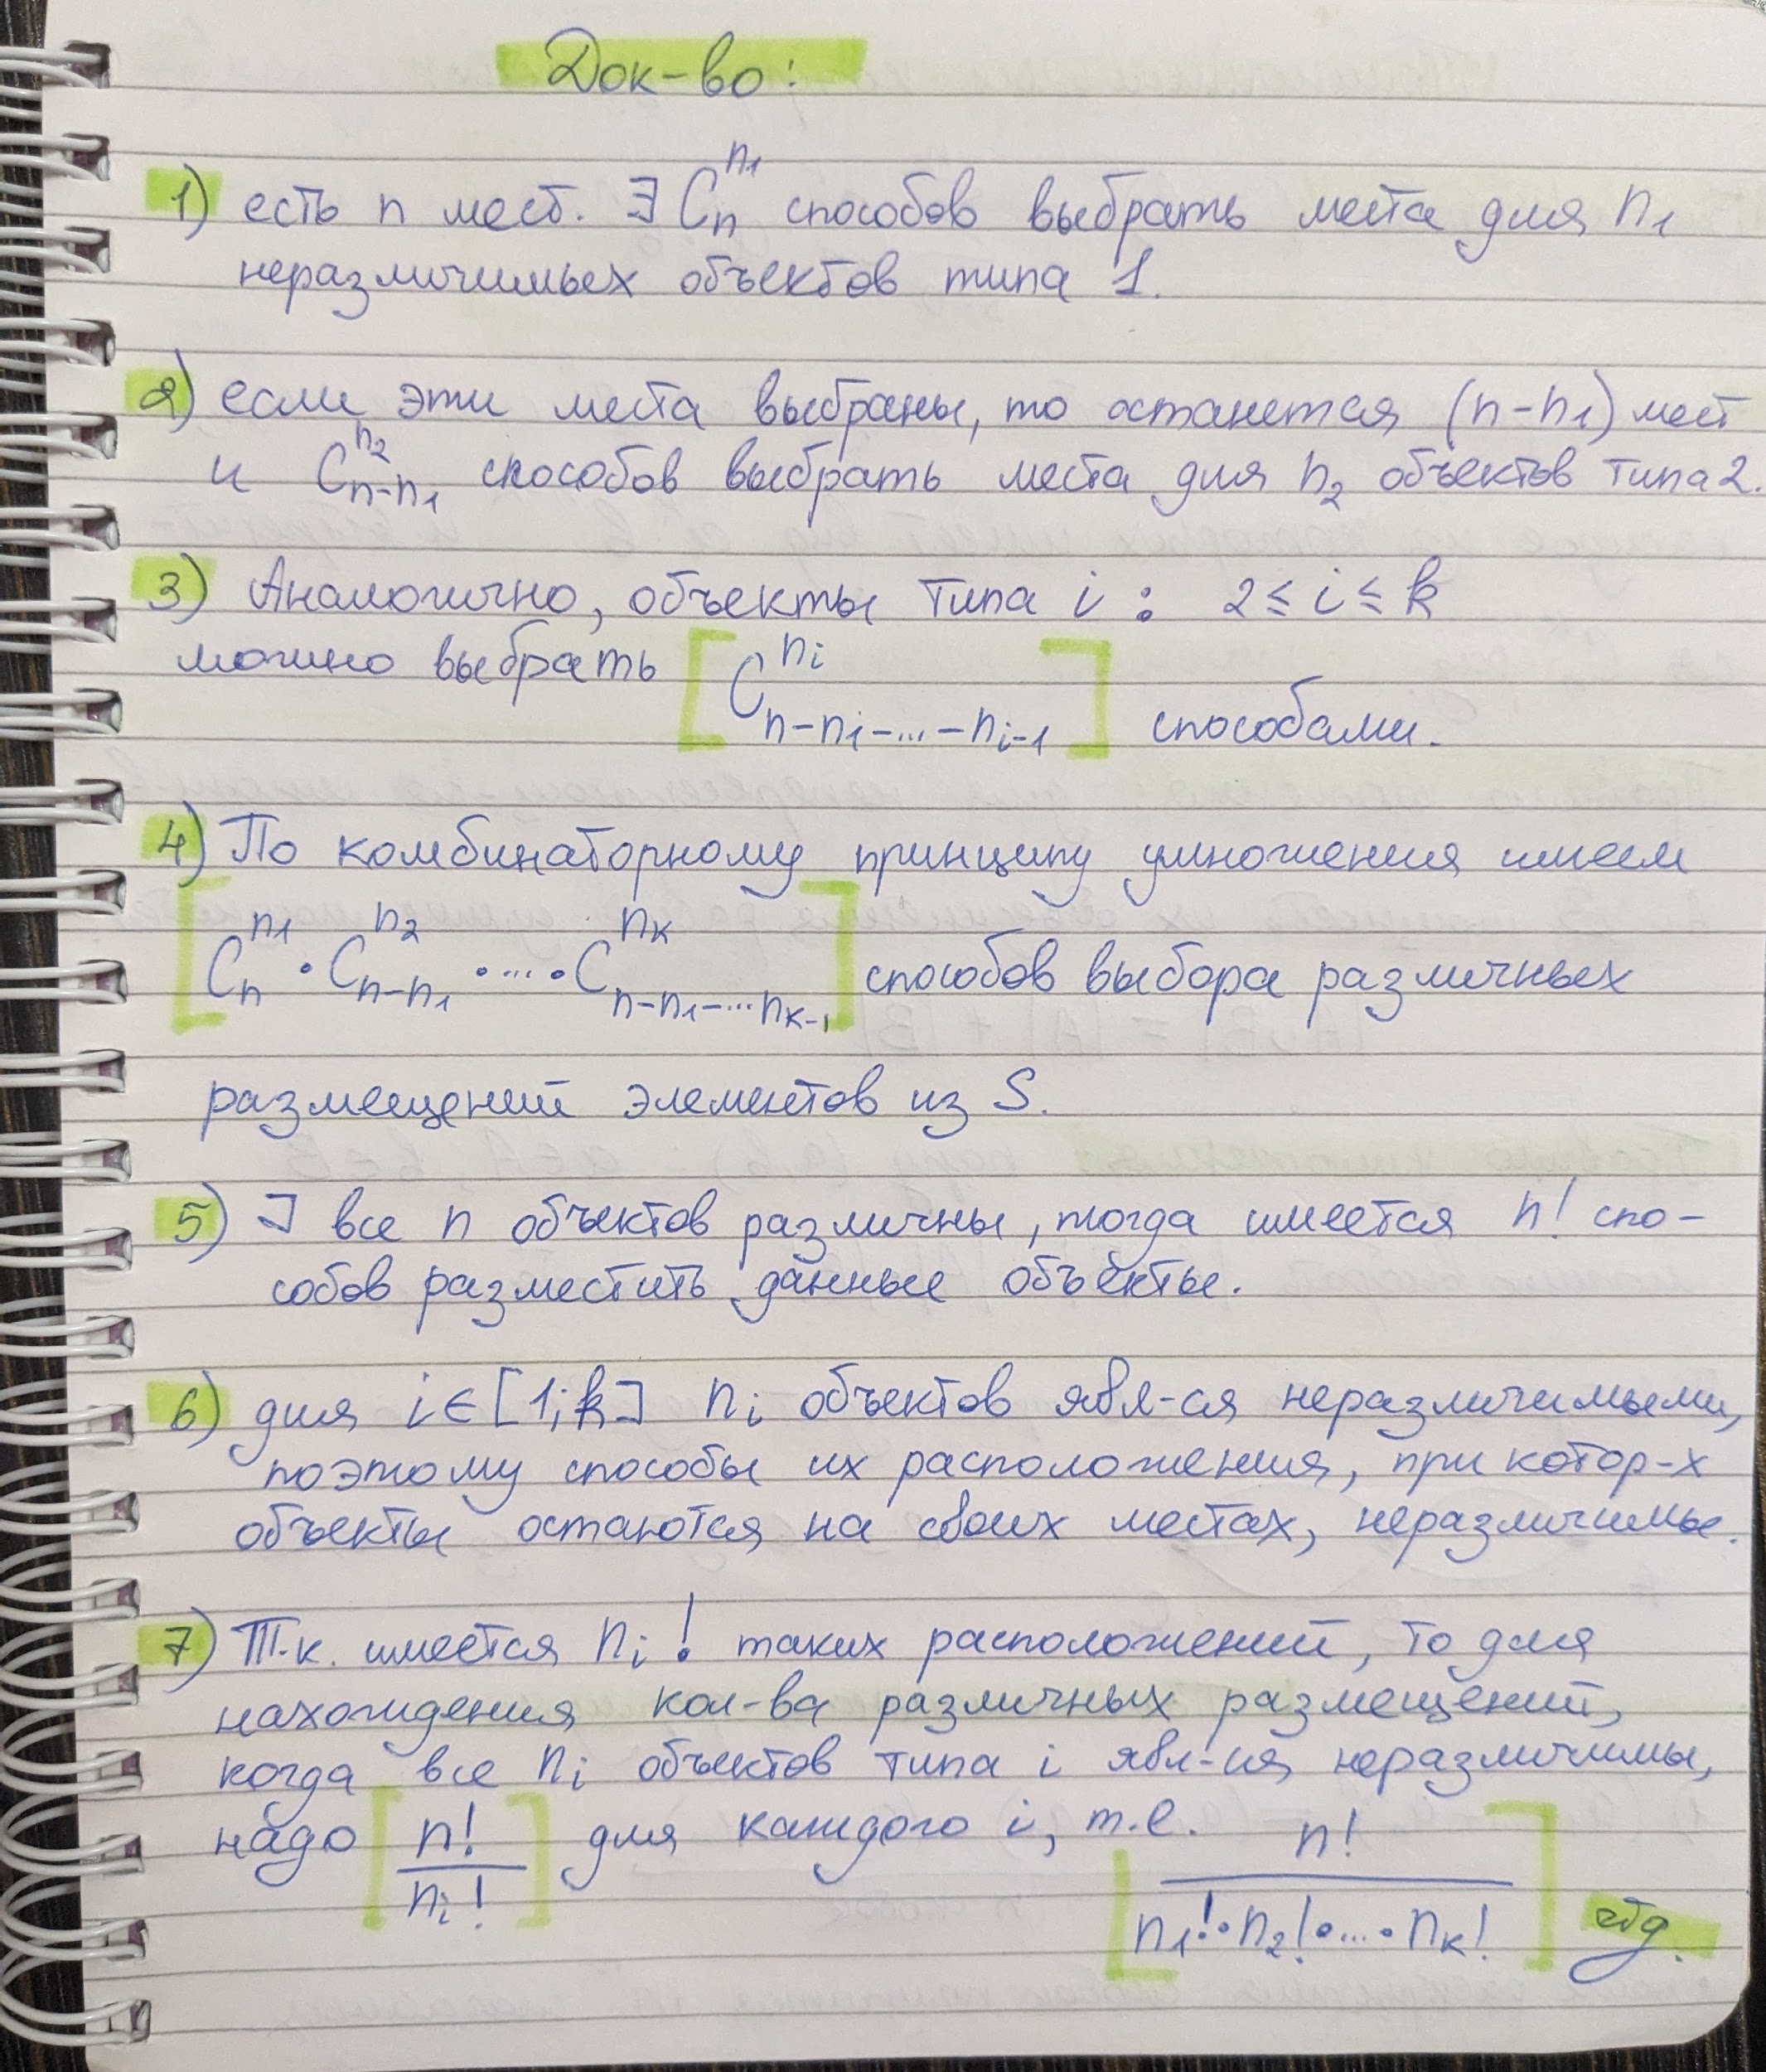 Док-во:
1) есть n мест. ∃ C_n^{n_1} способов выбрать места для n_1
неразличимых объектов типа 1.
2) если эти места выбраны, то останется (n-n_1) мест
и C_{n-n_1}^{n_2} способов выбрать места для n_2 объектов типа 2.
3) Аналогично, объекты типа i : 2 ≤ i ≤ k
можно выбрать [C_{n-n_1-...-n_{i-1}}^{n_i}] способами.
4) По комбинаторному принципу умножения имеем
[C_n^{n_1} · C_{n-n_1}^{n_2} · ... · C_{n-n_1-...n_{k-1}}^{n_k}] способов выбора различных
размещений элементов из S.
5) ] все n объектов различны, тогда имеется n! спо-
собов разместить данные объекты.
6) для i ∈ [1; k] n_i объектов явл-ся неразличимыми,
поэтому способы их расположения, при котор-х
объекты остаются на своих местах, неразличимы.
7) Т.к. имеется n_i! таких расположений, то для
нахождения кол-ва различных размещений,
когда все n_i объектов типа i явл-ся неразличимы,
надо [n!/n_i!] для каждого i, т.е. [n!/(n_1! · n_2! · ... · n_k!)] чтд.